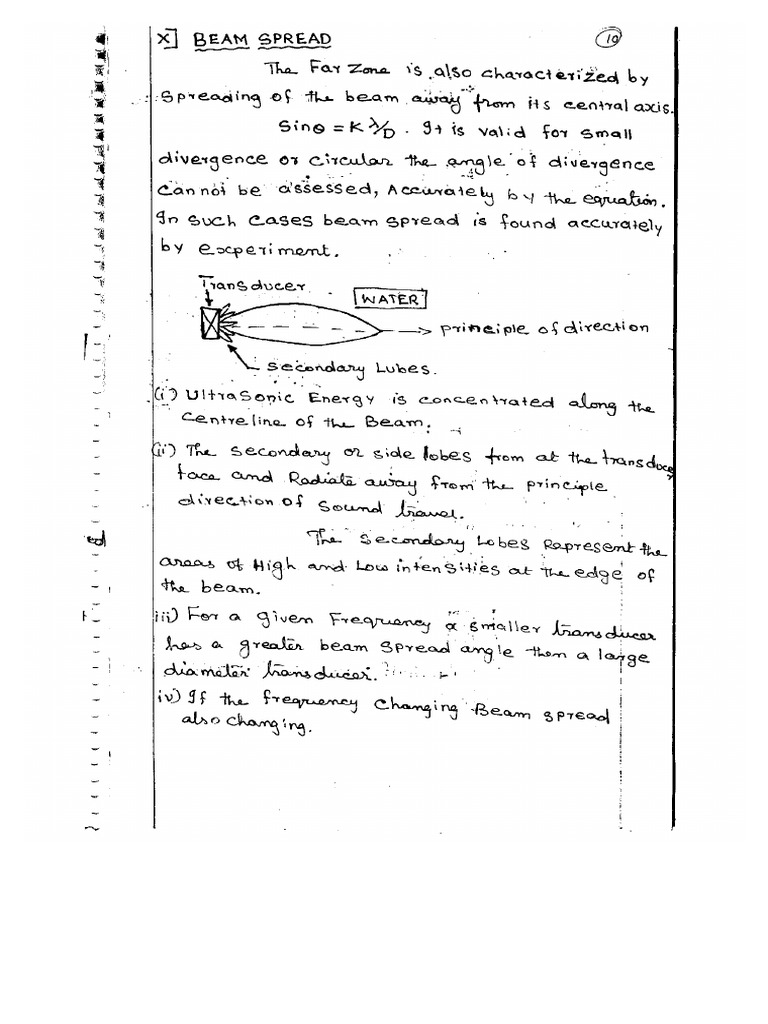 X] BEAM SPREAD
10
The Far Zone is also characterized by
Spreading of the beam away from its central axis.
Sinθ = K λ/D . It is valid for small
divergence or circular the angle of divergence
cannot be assessed, Accurately by the equation.
In such cases beam spread is found accurately
by experiment.
Transducer
WATER
principle of direction
secondary Lubes.
(i) Ultrasonic Energy is concentrated along the
centreline of the Beam.
(ii) The secondary or side lobes from at the transducer
face and Radiate away from the principle
direction of sound travel.
The Secondary Lobes Represent the
areas of High and Low intensities at the edge of
the beam.
iii) For a given Frequency a smaller transducer
has a greater beam spread angle then a large
diameter transducer.
iv) If the frequency changing Beam spread
also changing.